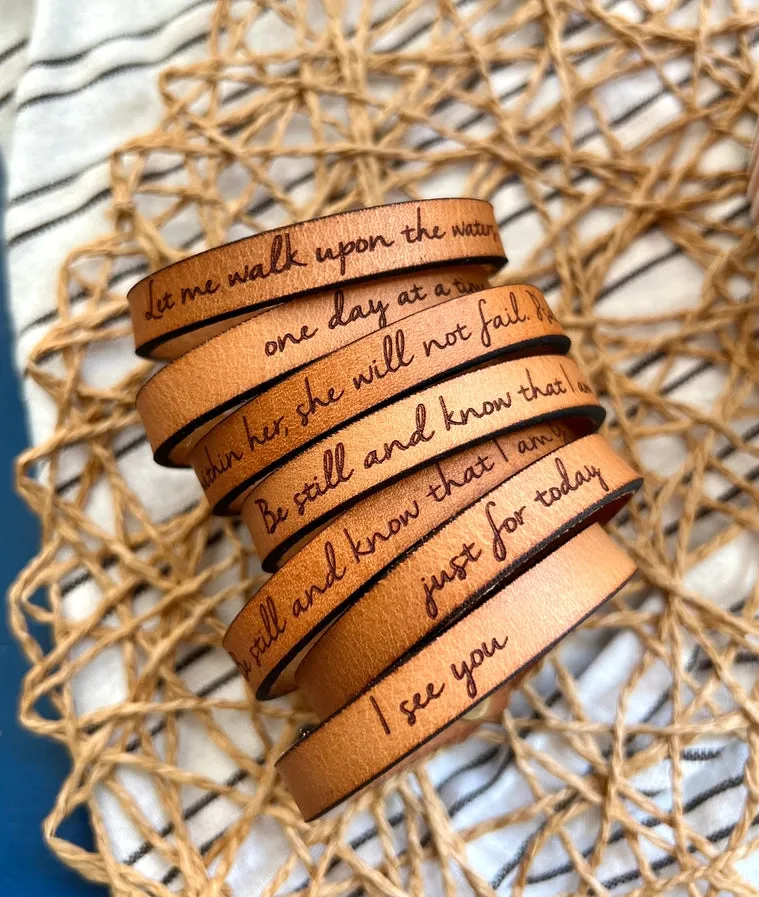 Let me walk upon the water
one day at a
her, she will not fail.
Be still and know that I
Be still and know that I am
just for today
I see you